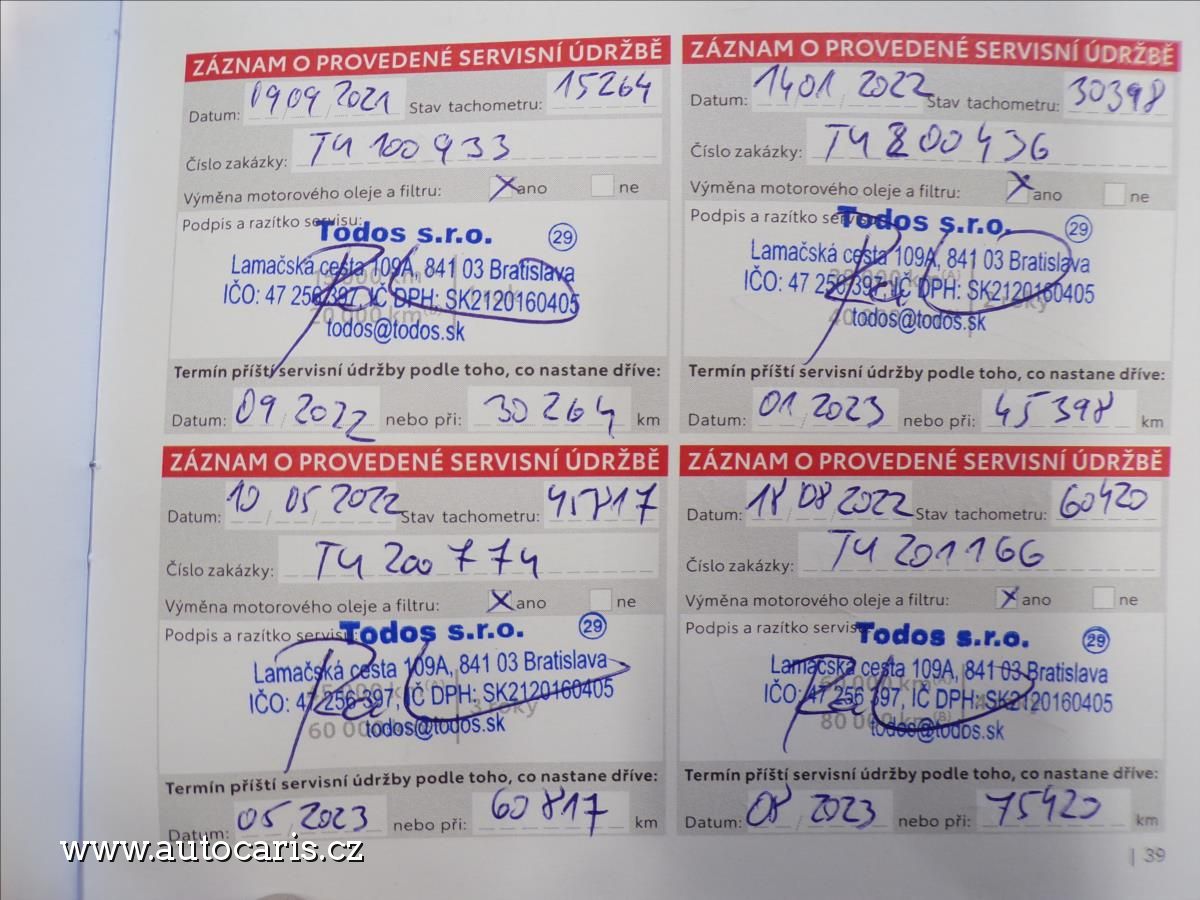 ZÁZNAM O PROVEDENÉ SERVISNÍ ÚDRŽBĚ
Datum: 09 09 2021 Stav tachometru: 15264
Číslo zakázky: T4 100 933
Výměna motorového oleje a filtru: X ano ne
Podpis a razítko servisu:
Todos s.r.o. 29
Lamačská cesta 109A, 841 03 Bratislava
IČO: 47 256 397, IČ DPH: SK2120160405
todos@todos.sk
Termín příští servisní údržby podle toho, co nastane dříve:
Datum: 09 2022 nebo při: 30 264 km
ZÁZNAM O PROVEDENÉ SERVISNÍ ÚDRŽBĚ
Datum: 14 01 2022 Stav tachometru: 30398
Číslo zakázky: T4 200 436
Výměna motorového oleje a filtru: X ano ne
Podpis a razítko servisu:
Todos s.r.o. 29
Lamačská cesta 109A, 841 03 Bratislava
IČO: 47 256 397, IČ DPH: SK2120160405
todos@todos.sk
Termín příští servisní údržby podle toho, co nastane dříve:
Datum: 01 2023 nebo při: 45 398 km
ZÁZNAM O PROVEDENÉ SERVISNÍ ÚDRŽBĚ
Datum: 10 05 2022 Stav tachometru: 45817
Číslo zakázky: T4 200 774
Výměna motorového oleje a filtru: X ano ne
Podpis a razítko servisu:
Todos s.r.o. 29
Lamačská cesta 109A, 841 03 Bratislava
IČO: 47 256 397, IČ DPH: SK2120160405
3 roky
60 000 km
todos@todos.sk
Termín příští servisní údržby podle toho, co nastane dříve:
Datum: 05 2023 nebo při: 60 817 km
ZÁZNAM O PROVEDENÉ SERVISNÍ ÚDRŽBĚ
Datum: 18 08 2022 Stav tachometru: 60420
Číslo zakázky: T4 201166
Výměna motorového oleje a filtru: X ano ne
Podpis a razítko servisu:
Todos s.r.o. 29
Lamačská cesta 109A, 841 03 Bratislava
IČO: 47 256 397, IČ DPH: SK2120160405
80 000 km
todos@todos.sk
Termín příští servisní údržby podle toho, co nastane dříve:
Datum: 08 2023 nebo při: 75420 km
| 39
www.autocaris.cz